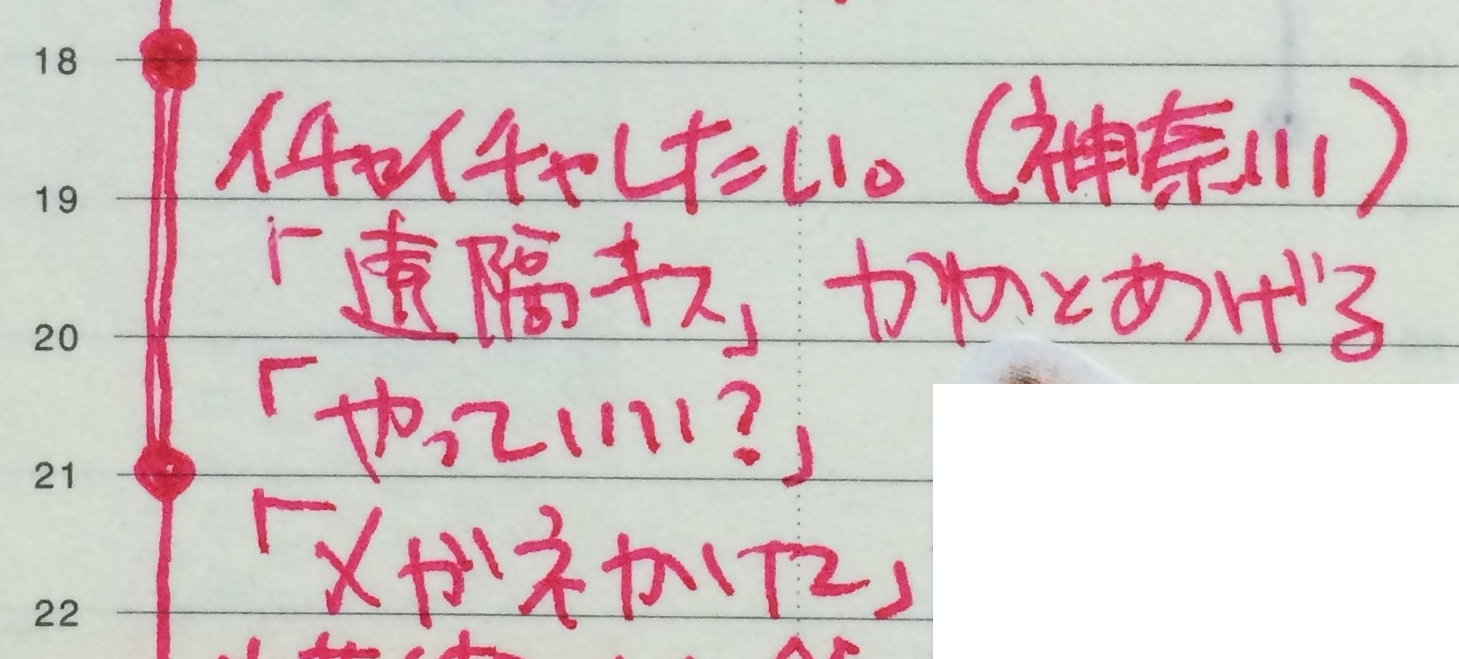 18
イチャイチャしたい。(神奈川)
19
「遠隔キス」 かかとあげる
20
「やっていい?」
21
「メガネかけて」
22